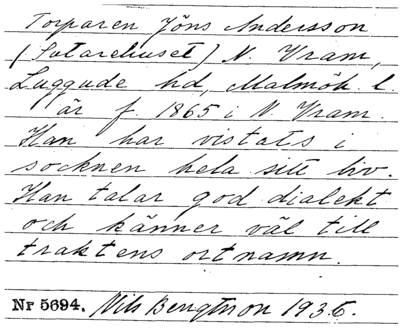 Torparen Jöns Andersson
(Sotarehuset) N. Vram,
Luggude hd, Malmöh. l.
är f. 1865 i N. Vram.
Han har vistats i
socknen hela sitt liv.
Han talar god dialekt
och känner väl till
traktens ortnamn.
Nr 5694. Nils Bengtsson 1936.